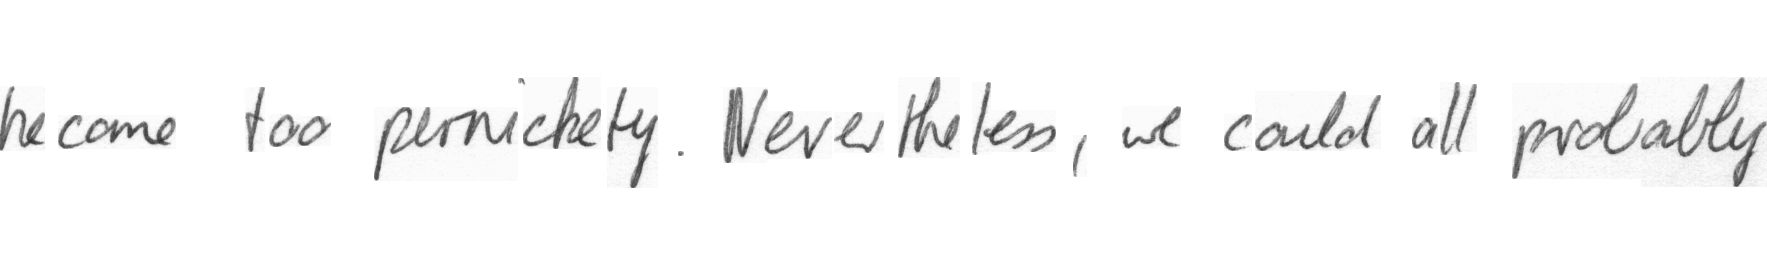 become too pernickety. Nevertheless, we could all probably